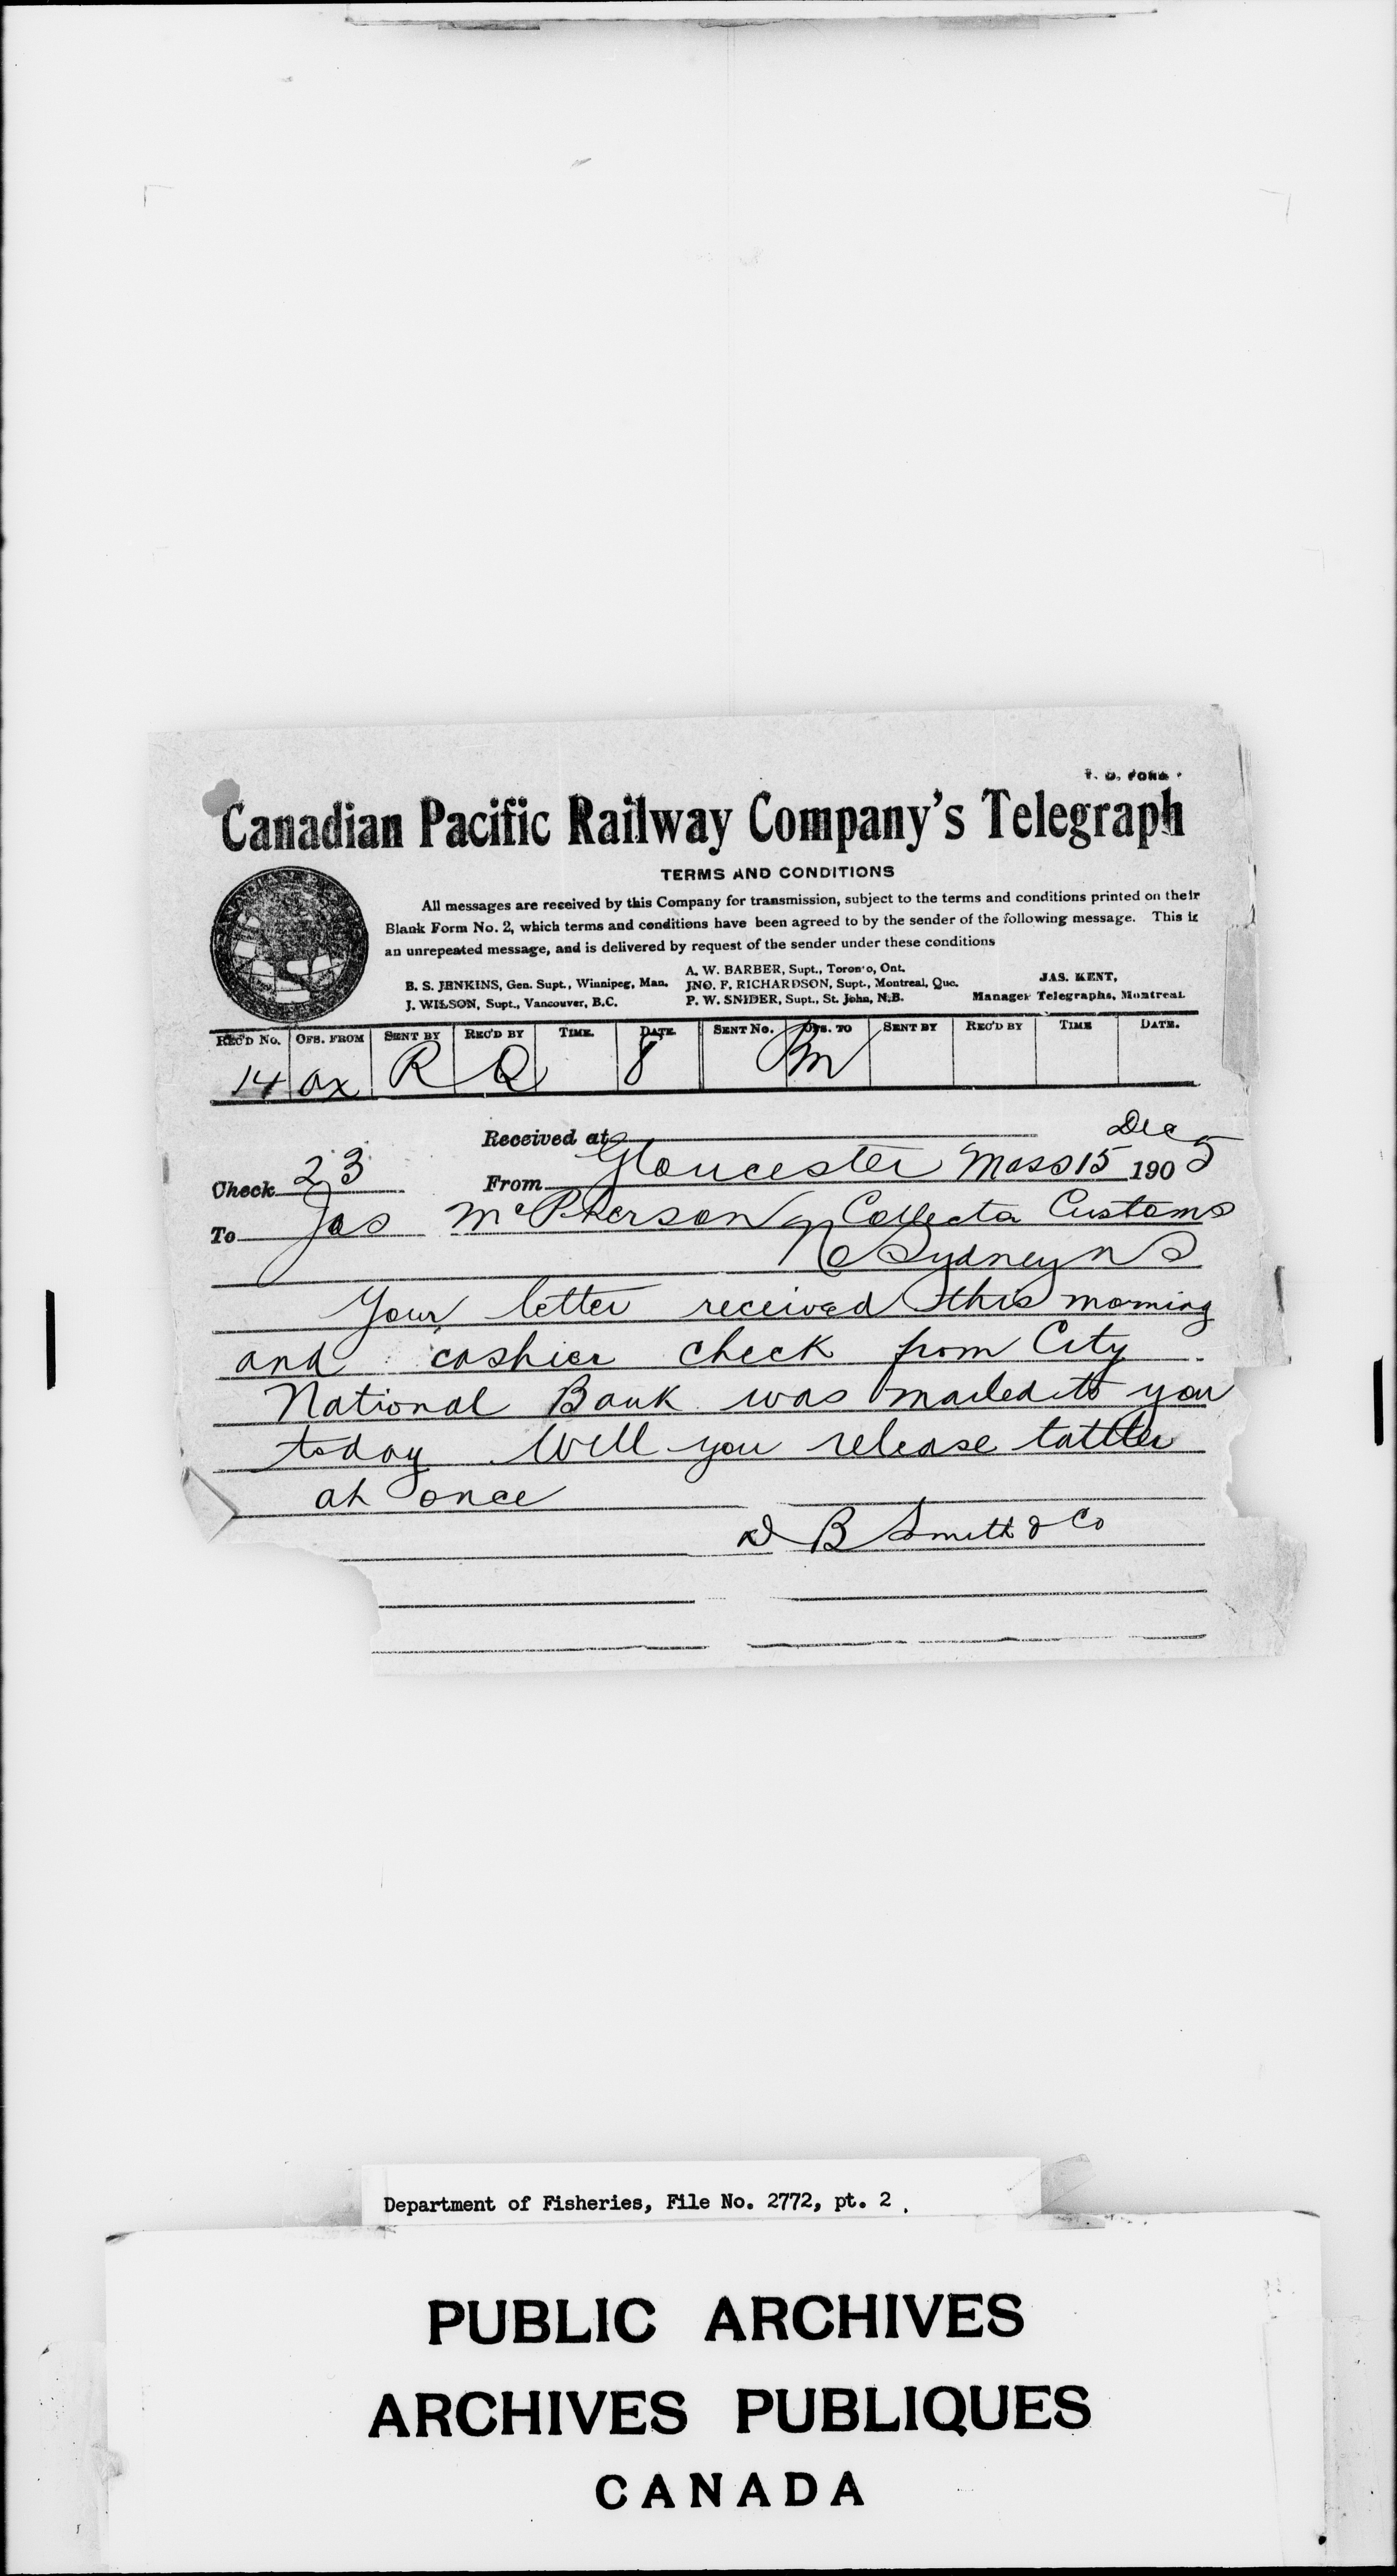 Canadian Pacific Railway Company's Telegraph
TERMS AND CONDITIONS
All messages are received by this Company for transmission, subject to the terms and conditions printed on their
Blank Form No. 2, which terms and conditions have been agreed to by the sender of the following message. This is
an unrepeated message, and is delivered by request of the sender under these conditions
A. W. BARBER, Supt., Toronto, Ont.
B. S. JENKINS, Gen. Supt., Winnipeg, Man. JNO. F. RICHARDSON, Supt., Montreal, Que. JAS. KENT,
J. WILSON, Supt., Vancouver, B.C. P. W. SNIDER, Supt., St. John, N.B. Manager Telegraphs, Montreal.
REC'D No. OFS. FROM SENT BY REC'D BY TIME. DATE. SENT No. OFS. TO SENT BY REC'D BY TIME DATE.
14 ax R Q 8 Bm
Received at Dec
Check 23 From Gloucester Mass 15 1905
To Jas McPherson Collector Customs
No Sydney NS
Your letter received this morning
and cashier check from City
National Bank was mailed to you
today Will you release tattler
at once
D B Smith & Co
Department of Fisheries, File No. 2772, pt. 2
PUBLIC ARCHIVES
ARCHIVES PUBLIQUES
CANADA